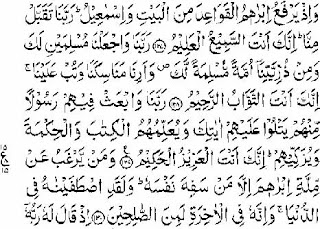 وَاِذْ يَرْفَعُ اِبْرٰهٖمُ الْقَوَاعِدَ مِنَ الْبَيْتِ وَاِسْمٰعِيْلُ ؕ رَبَّنَا تَقَبَّلْ
مِنَّا ؕ اِنَّكَ اَنْتَ السَّمِيْعُ الْعَلِيْمُ ﴿۱۲۷﴾ رَبَّنَا وَاجْعَلْنَا مُسْلِمَيْنِ لَكَ
وَمِنْ ذُرِّيَّتِنَاۤ اُمَّةً مُّسْلِمَةً لَّكَ ۪ وَاَرِنَا مَنَاسِكَنَا وَتُبْ عَلَيْنَا ۚ
اِنَّكَ اَنْتَ التَّوَّابُ الرَّحِيْمُ ﴿۱۲۸﴾ رَبَّنَا وَابْعَثْ فِيْهِمْ رَسُوْلًا
مِّنْهُمْ يَتْلُوْا عَلَيْهِمْ اٰيٰتِكَ وَيُعَلِّمُهُمُ الْكِتٰبَ وَالْحِكْمَةَ
وَيُزَكِّيْهِمْ ؕ اِنَّكَ اَنْتَ الْعَزِيْزُ الْحَكِيْمُ ﴿۱۲۹﴾ وَمَنْ يَّرْغَبُ عَنْ
مِّلَّةِ اِبْرٰهٖمَ اِلَّا مَنْ سَفِهَ نَفْسَهٗ ؕ وَلَقَدِ اصْطَفَيْنٰهُ فِى
الدُّنْيَا ۚ وَاِنَّهٗ فِى الْاٰخِرَةِ لَمِنَ الصّٰلِحِيْنَ ﴿۱۳۰﴾ اِذْ قَالَ لَهٗ رَبُّهٗۤ